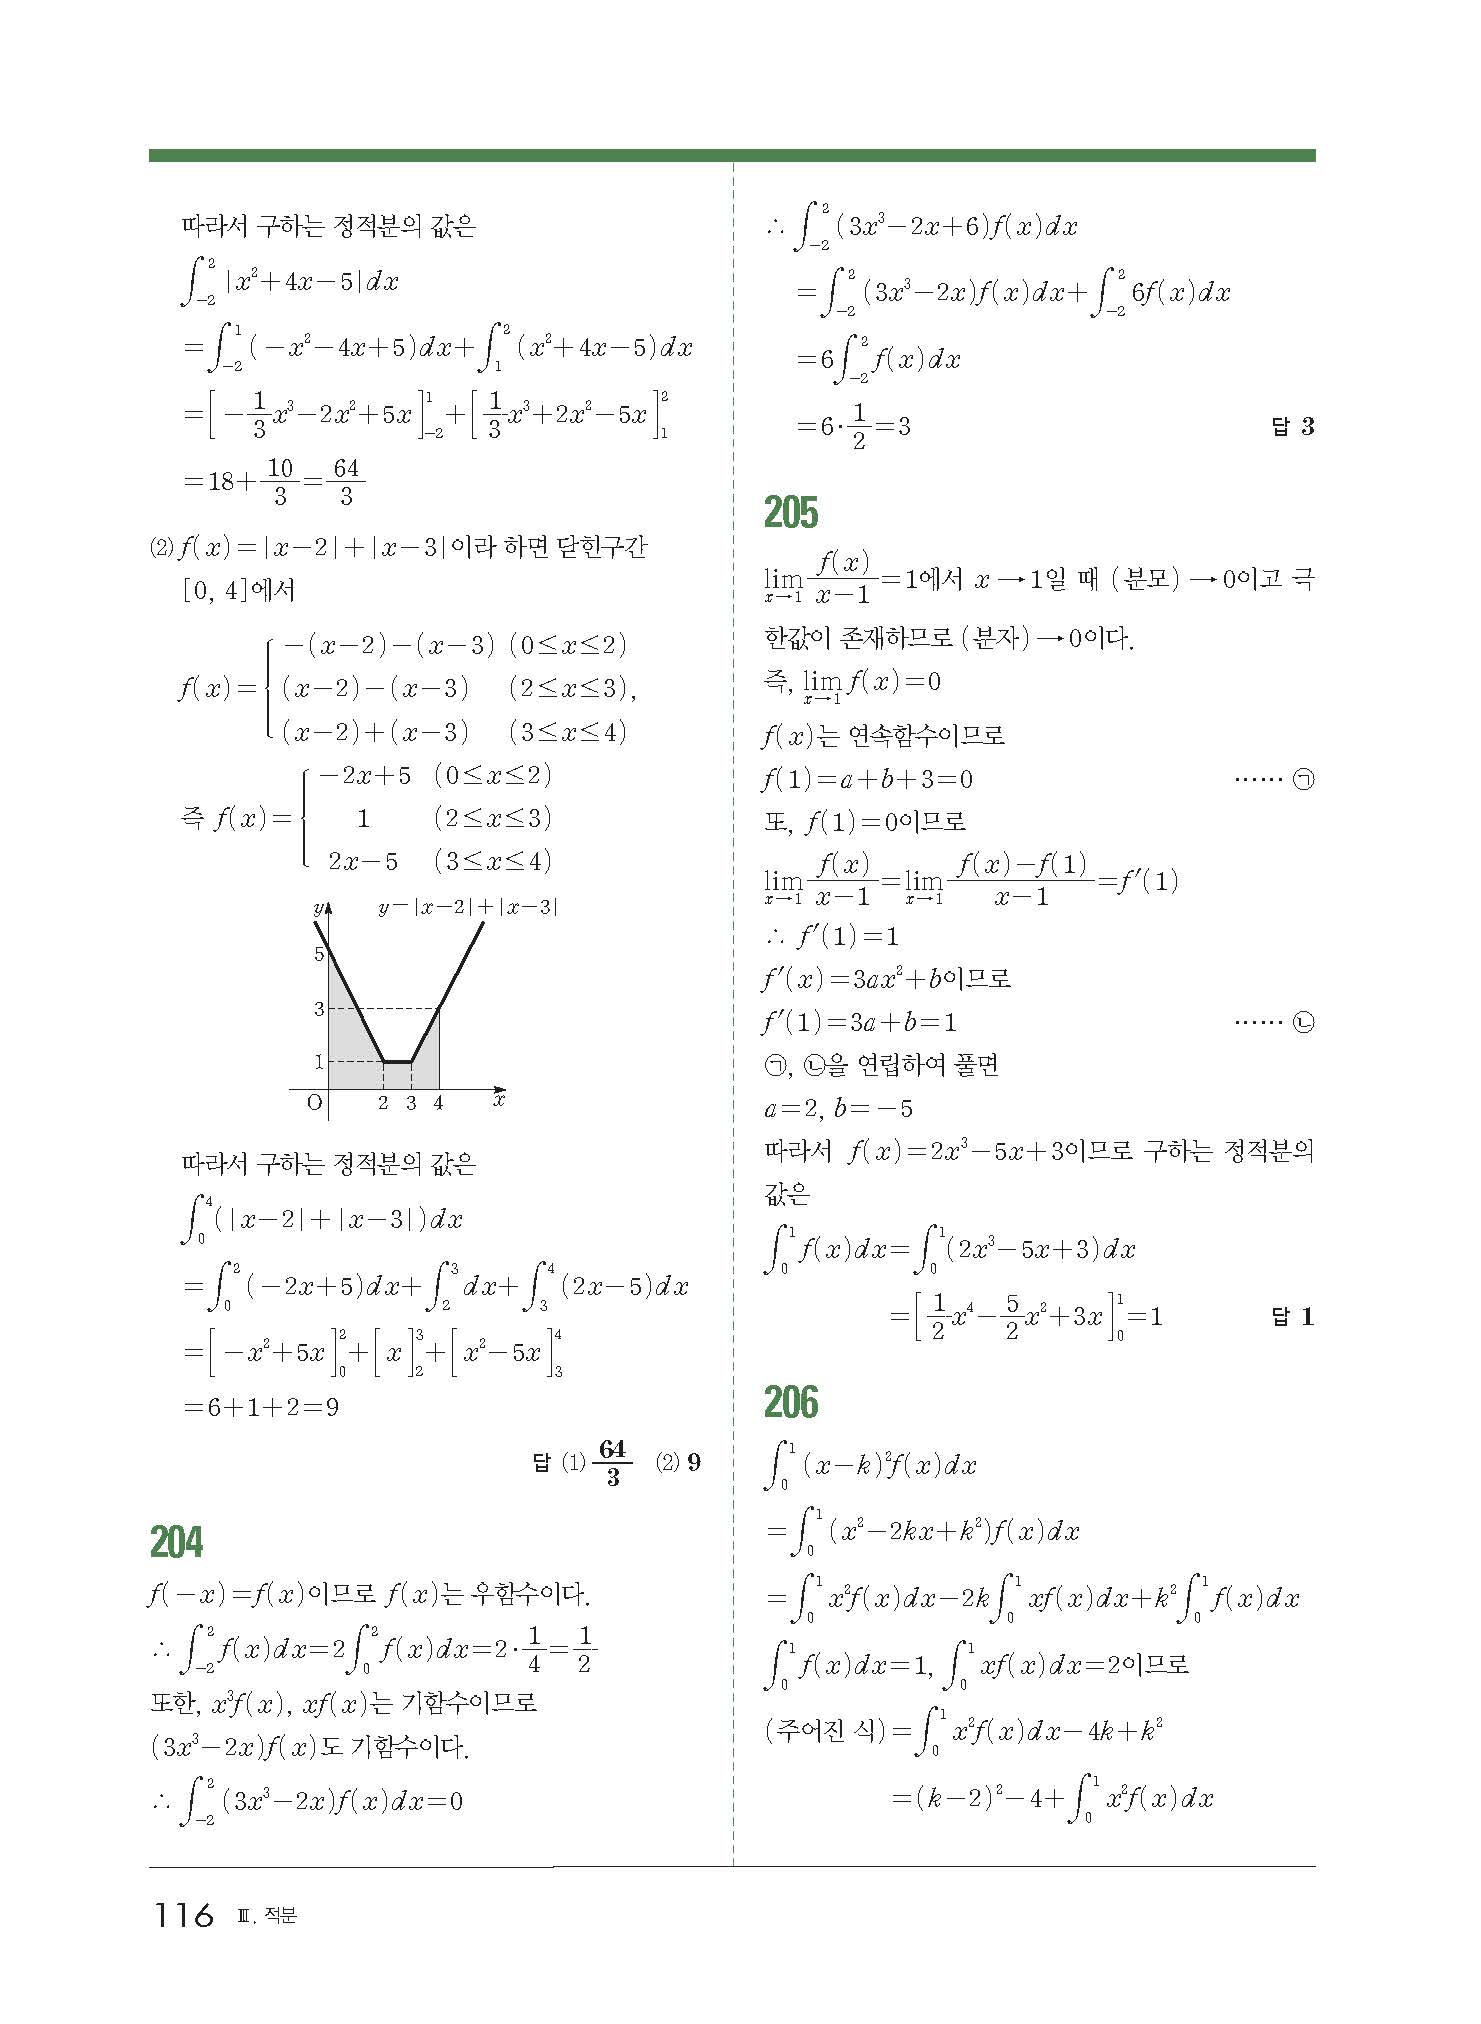 따라서 구하는 정적분의 값은
∫_{-2}^{2} |x²+4x-5|dx
=∫_{-2}^{1} (-x²-4x+5)dx+∫_{1}^{2} (x²+4x-5)dx
=[-1/3 x³-2x²+5x]_{-2}^{1}+[1/3 x³+2x²-5x]_{1}^{2}
=18+10/3=64/3
⑵ f(x)=|x-2|+|x-3|이라 하면 닫힌구간
[0, 4]에서
f(x)={ -(x-2)-(x-3) (0≤x≤2)
(x-2)-(x-3) (2≤x≤3),
(x-2)+(x-3) (3≤x≤4)
즉 f(x)={ -2x+5 (0≤x≤2)
1 (2≤x≤3)
2x-5 (3≤x≤4)
y y=|x-2|+|x-3|
5
3
1
O 2 3 4 x
따라서 구하는 정적분의 값은
∫_{0}^{4} (|x-2|+|x-3|)dx
=∫_{0}^{2} (-2x+5)dx+∫_{2}^{3} dx+∫_{3}^{4} (2x-5)dx
=[-x²+5x]_{0}^{2}+[x]_{2}^{3}+[x²-5x]_{3}^{4}
=6+1+2=9
답 ⑴ 64/3 ⑵ 9
204
f(-x)=f(x)이므로 f(x)는 우함수이다.
∴ ∫_{-2}^{2} f(x)dx=2∫_{0}^{2} f(x)dx=2·1/4=1/2
또한, x³f(x), xf(x)는 기함수이므로
(3x³-2x)f(x)도 기함수이다.
∴ ∫_{-2}^{2} (3x³-2x)f(x)dx=0
∴ ∫_{-2}^{2} (3x³-2x+6)f(x)dx
=∫_{-2}^{2} (3x³-2x)f(x)dx+∫_{-2}^{2} 6f(x)dx
=6∫_{-2}^{2} f(x)dx
=6·1/2=3 답 3
205
lim_{x→1} f(x)/(x-1)=1에서 x→1일 때 (분모)→0이고 극
한값이 존재하므로 (분자)→0이다.
즉, lim_{x→1} f(x)=0
f(x)는 연속함수이므로
f(1)=a+b+3=0 …… ㉠
또, f(1)=0이므로
lim_{x→1} f(x)/(x-1)=lim_{x→1} (f(x)-f(1))/(x-1)=f′(1)
∴ f′(1)=1
f′(x)=3ax²+b이므로
f′(1)=3a+b=1 …… ㉡
㉠, ㉡을 연립하여 풀면
a=2, b=-5
따라서 f(x)=2x³-5x+3이므로 구하는 정적분의
값은
∫_{0}^{1} f(x)dx=∫_{0}^{1} (2x³-5x+3)dx
=[1/2 x⁴-5/2 x²+3x]_{0}^{1}=1 답 1
206
∫_{0}^{1} (x-k)²f(x)dx
=∫_{0}^{1} (x²-2kx+k²)f(x)dx
=∫_{0}^{1} x²f(x)dx-2k∫_{0}^{1} xf(x)dx+k²∫_{0}^{1} f(x)dx
∫_{0}^{1} f(x)dx=1, ∫_{0}^{1} xf(x)dx=2이므로
(주어진 식)=∫_{0}^{1} x²f(x)dx-4k+k²
=(k-2)²-4+∫_{0}^{1} x²f(x)dx
116 Ⅲ. 적분